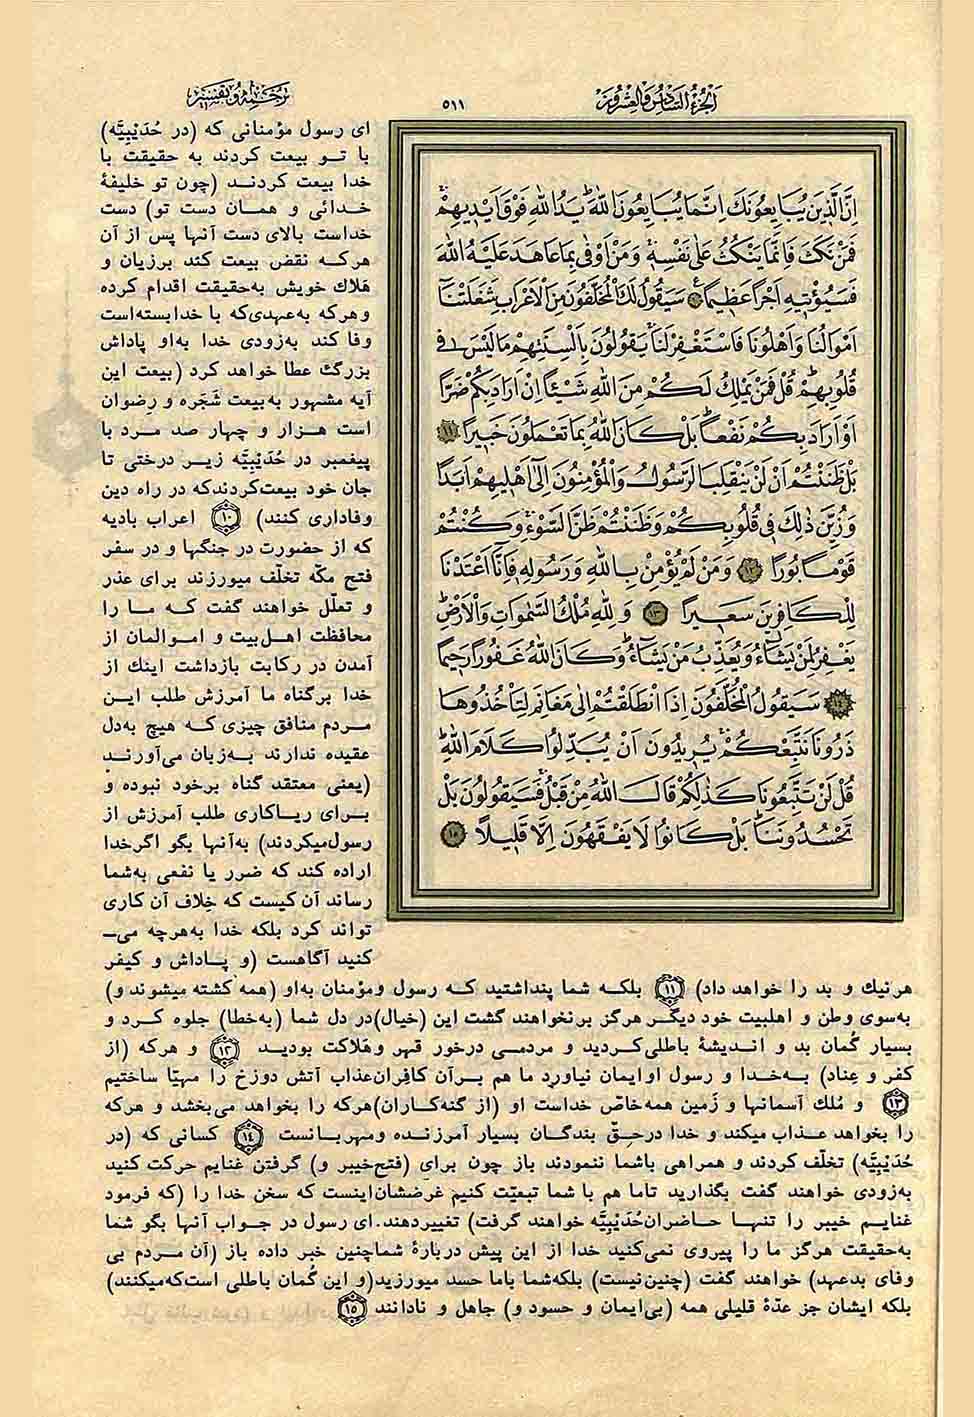 الجزء السادس والعشرون
۵۱۱
ترجمه و تفسیر
اِنَّ الَّذينَ يُبايِعُونَكَ اِنَّما يُبايِعُونَ اللّٰهَ يَدُ اللّٰهِ فَوْقَ اَيْديهِمْ
فَمَنْ نَكَثَ فَاِنَّما يَنْكُثُ عَلىٰ نَفْسِهِ وَمَنْ اَوْفىٰ بِما عاهَدَ عَلَيْهُ اللّٰهَ
فَسَيُؤْتيهِ اَجْرًا عَظيمًا ۱۰ سَيَقُولُ لَكَ الْمُخَلَّفُونَ مِنَ الْاَعْرابِ شَغَلَتْنا
اَمْوالُنا وَاَهْلُونا فَاسْتَغْفِرْلَنا يَقُولُونَ بِاَلْسِنَتِهِمْ ما لَيْسَ فى
قُلُوبِهِمْ قُلْ فَمَنْ يَمْلِكُ لَكُمْ مِنَ اللّٰهِ شَيْئًا اِنْ اَرادَ بِكُمْ ضَرًّا
اَوْ اَرادَ بِكُمْ نَفْعًا بَلْ كانَ اللّٰهُ بِما تَعْمَلُونَ خَبيرًا ۱۱
بَلْ ظَنَنْتُمْ اَنْ لَنْ يَنْقَلِبَ الرَّسُولُ وَالْمُؤْمِنُونَ اِلىٰ اَهْليهِمْ اَبَدًا
وَزُيِّنَ ذٰلِكَ فى قُلُوبِكُمْ وَظَنَنْتُمْ ظَنَّ السَّوْءِ وَكُنْتُمْ
قَوْمًا بُورًا ۱۲ وَمَنْ لَمْ يُؤْمِنْ بِاللّٰهِ وَرَسُولِهِ فَاِنّا اَعْتَدْنا
لِلْكافِرينَ سَعيرًا ۱۳ وَلِلّٰهِ مُلْكُ السَّمٰواتِ وَالْاَرْضِ
يَغْفِرُ لِمَنْ يَشاءُ وَيُعَذِّبُ مَنْ يَشاءُ وَكانَ اللّٰهُ غَفُورًا رَحيمًا
۱٤ سَيَقُولُ الْمُخَلَّفُونَ اِذَا انْطَلَقْتُمْ اِلىٰ مَغانِمَ لِتَأْخُذُوها
ذَرُونا نَتَّبِعْكُمْ يُريدُونَ اَنْ يُبَدِّلُوا كَلامَ اللّٰهِ
قُلْ لَنْ تَتَّبِعُونا كَذٰلِكُمْ قالَ اللّٰهُ مِنْ قَبْلُ فَسَيَقُولُونَ بَلْ
تَحْسُدُونَنا بَلْ كانُوا لا يَفْقَهُونَ اِلّا قَليلًا ۱۵
ای رسول مؤمنانی که (در حُدَیْبِیَّه)
با تو بیعت کردند به حقیقت با
خدا بیعت کردند (چون تو خلیفهٔ
خدائی و همان دست تو) دست
خداست بالای دست آنها پس از آن
هرکه نقض بیعت کند برزیان و
هَلاك خویش به‌حقیقت اقدام کرده
وهرکه به‌عهدی‌که با خدابسته‌است
وفا کند به‌زودی خدا به‌او پاداش
بزرگ عطا خواهد کرد (بیعت این
آیه مشهور به‌بیعت شَجَره و رِضوان
است هزار و چهار صد مرد با
پیغمبر در حُدَیْبِیَّه زیر درختی تا
جان خود بیعت‌کردندکه در راه دین
وفاداری کنند) ۱۰ اعراب بادیه
که از حضورت در جنگها و در سفر
فتح مکّه تخلّف میورزند برای عذر
و تعلّل خواهند گفت که ما را
محافظت اهل‌بیت و اموالمان از
آمدن در رکابت بازداشت اینك از
خدا برگناه ما آمرزش طلب این
مردم منافق چیزی که هیچ به‌دل
عقیده ندارند به‌زبان می‌آورند
(یعنی معتقد گناه برخود نبوده و
برای ریاکاری طلب آمرزش از
رسول‌میکردند) به‌آنها بگو اگرخدا
اراده کند که ضرر یا نفعی به‌شما
رساند آن کیست که خِلاف آن کاری
تواند کرد بلکه خدا به‌هرچه می‌ـ
کنید آگاهست (و پاداش و کیفر
هرنیك و بد را خواهد داد) ۱۱ بلکه شما پنداشتید که رسول ومؤمنان به‌او (همه کشته میشوند و)
به‌سوی وطن و اهلبیت خود دیگر هرگز برنخواهند گشت این (خیال)در دل شما (به‌خطا) جلوه کرد و
بسیار گُمان بد و اندیشهٔ باطلی‌کردید و مردمی درخور قهر وهَلاکت بودید ۱۲ و هرکه (از
کفر و عِناد) به‌خدا و رسول اوایمان نیاورد ما هم برآن کافِران‌عذاب آتش دوزخ را مهیّا ساختیم
۱۳ و مُلك آسمانها و زَمین همه‌خاصّ خداست او (از گنه‌کاران)هرکه را بخواهد می‌بخشد و هرکه
را بخواهد عذاب میکند و خدا درحقّ بندگان بسیار آمرزنده ومهربانست ۱٤ کسانی که (در
حُدَیْبِیَّه) تخلّف کردند و همراهی باشما ننمودند باز چون برای (فتح‌خیبر و) گرفتن غنایم حرکت کنید
به‌زودی خواهند گفت بگذارید تاما هم با شما تبعیّت کنیم غرضشان‌اینست که سخن خدا را (که فرمود
غنایم خیبر را تنها حاضران‌حُدَیْبِیَّه خواهند گرفت) تغییردهند. ای رسول در جواب آنها بگو شما
به‌حقیقت هرگز ما را پیروی نمی‌کنید خدا از این پیش دربارهٔ شماچنین خبر داده باز (آن مردم بی
وفای بدعهد) خواهند گفت (چنین‌نیست) بلکه‌شما باما حسد میورزید(و این گُمان باطلی است‌که‌میکنند)
بلکه ایشان جز عدّهٔ قلیلی همه (بی‌ایمان و حسود و) جاهل و نادانند ۱۵